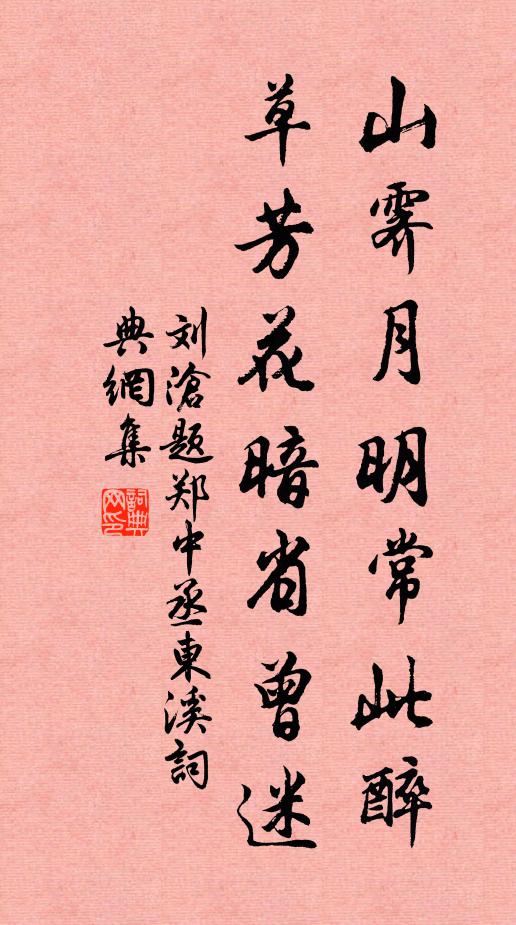 山霁月明常此醉
草芳花暗省曾迷
刘滄题郑中丞東溪詞
典網集
詞典网印